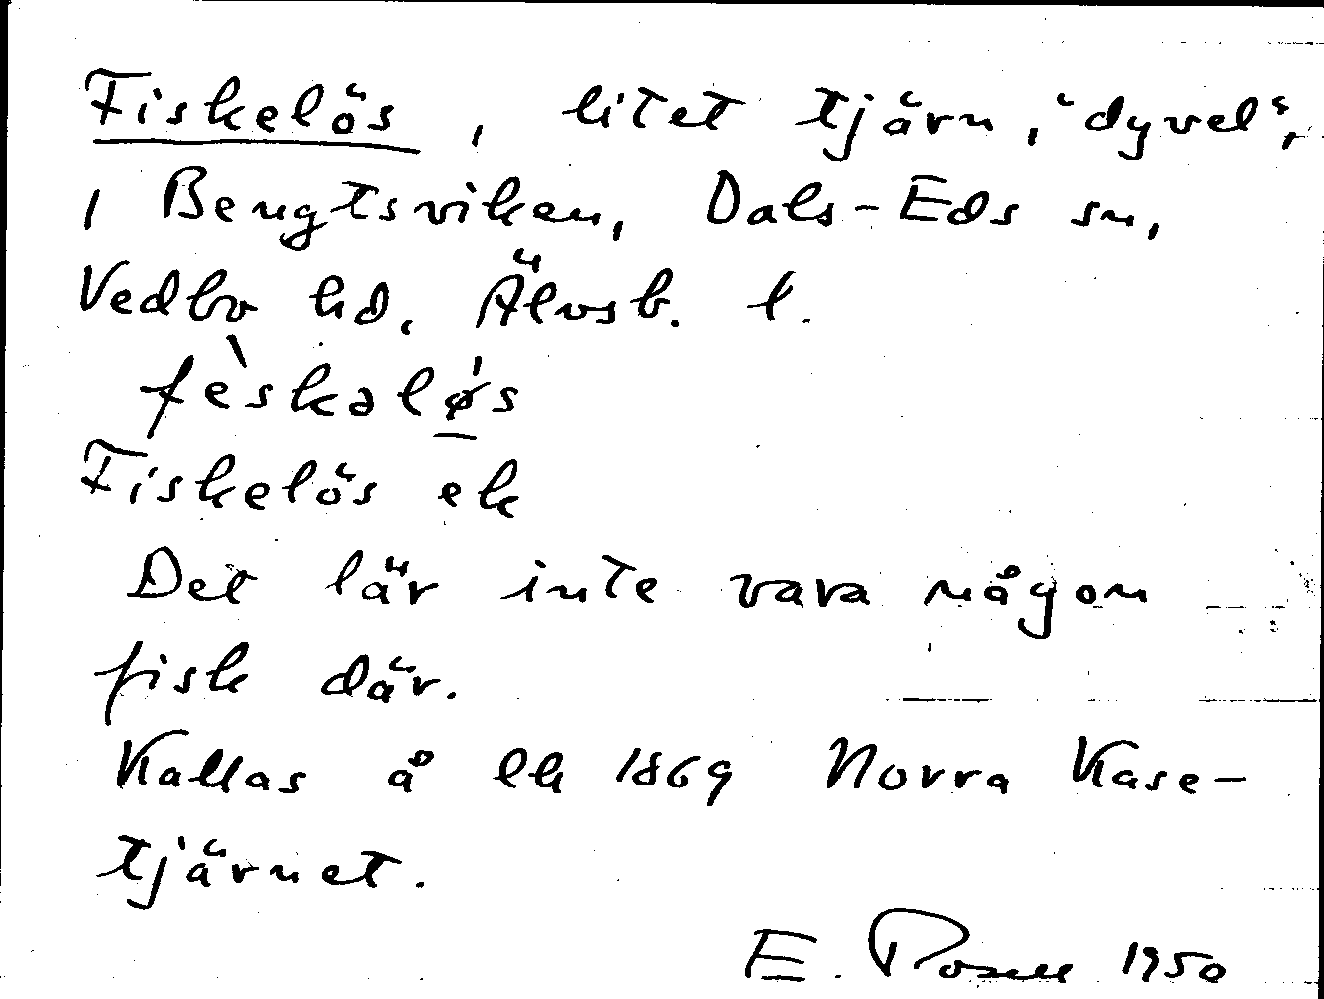 Fiskelös, litet tjärn, "dyvel",
i Bengtsviken, Dals-Eds sn,
Vedbo hd, Älvsb. l.
fèskaløs
Fiskelös ek
Det lär inte vara någon
fisk där.
Kallas å lk 1869 Norra Kase-
tjärnet.
E. 1950